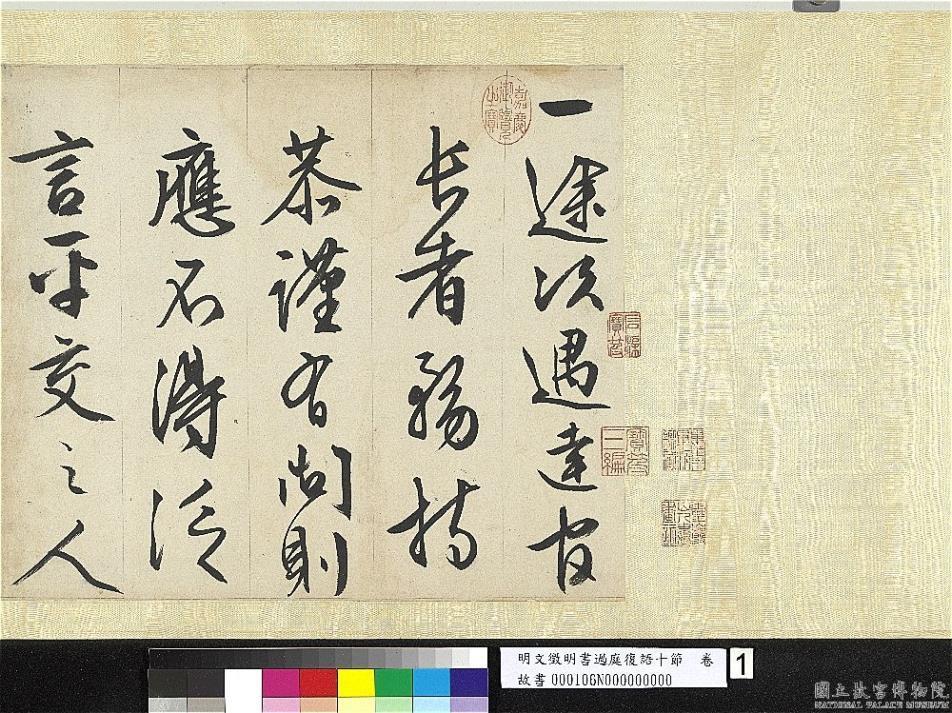 一途次遇達官
長者務持
恭謹有問則
應不得泛
言平交之人
嘉慶御覽之寶
寶笈三編
明文徵明書過庭復語十節　卷
故書000106N000000000
1
國立故宮博物院
NATIONAL PALACE MUSEUM